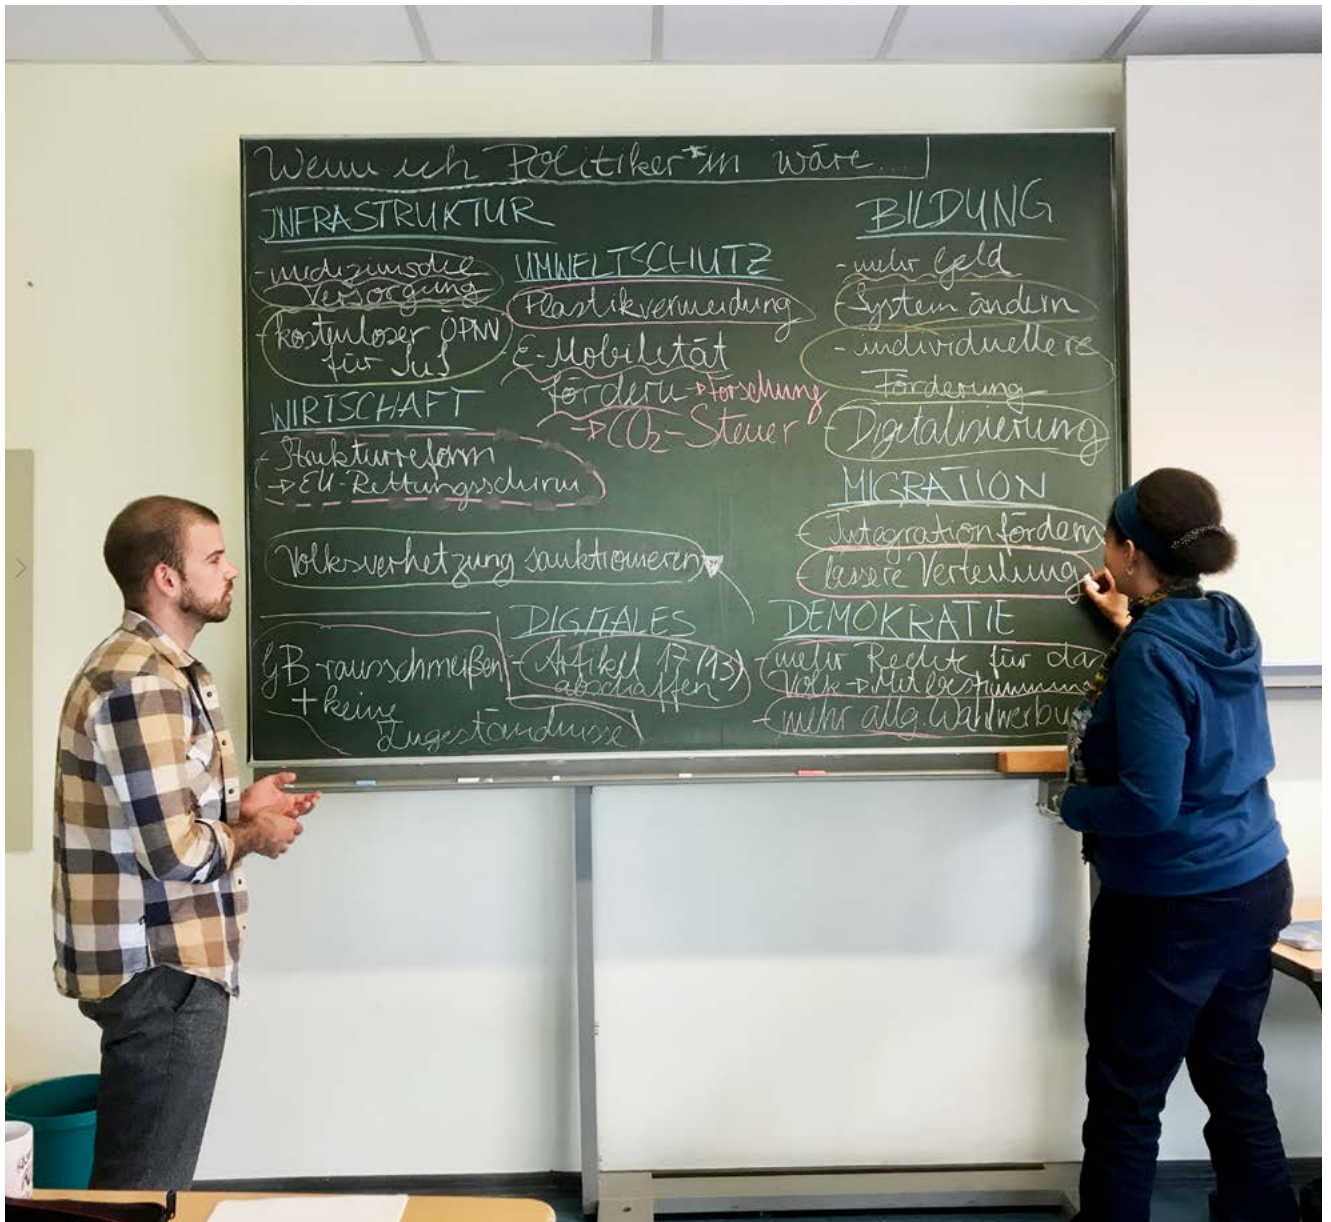 Wenn ich Politiker*in wäre...
INFRASTRUKTUR
- medizinische
Versorgung
- kostenloser ÖPNV
für SuS
WIRTSCHAFT
- Strukturreform
→ EU-Rettungsschirm
Volksverhetzung sanktionieren
GB rausschmeißen
+ keine
Zugeständnisse
UMWELTSCHUTZ
Plastikvermeidung
E-Mobilität
fördern → Forschung
→ CO₂-Steuer
DIGITALES
- Artikel 17 (13)
abschaffen
BILDUNG
- mehr Geld
- System ändern
- individuellere
Förderung
- Digitalisierung
MIGRATION
- Integration fördern
- Verteilung
DEMOKRATIE
- mehr Rechte für das
Volk → Mitbestimmung
- mehr allg. Wahlwerbu